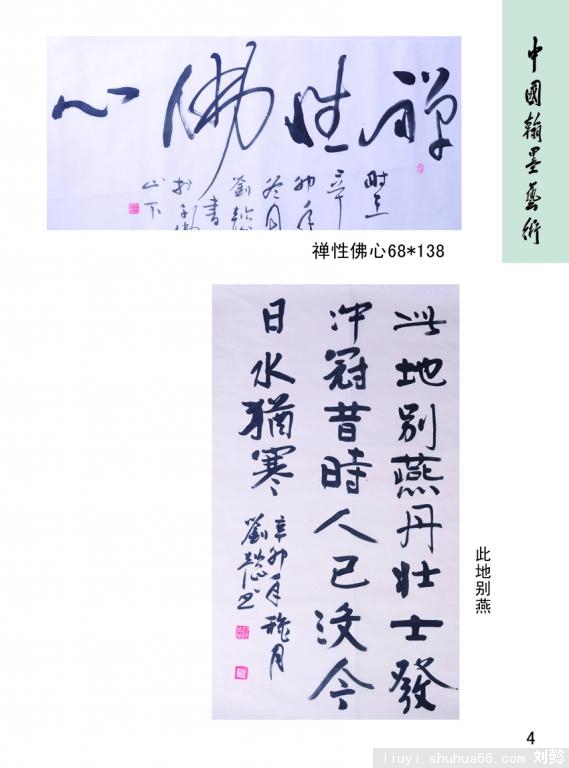 中國翰墨藝術
禅性佛心
时在
辛
卯年
冬月
劉懿
書
山下
禅性佛心68*138
此地別燕丹壯士發
冲冠昔時人已没今
日水猶寒
辛卯年
劉懿书
此地别燕
4
liuyi.shuhua66.com 刘懿